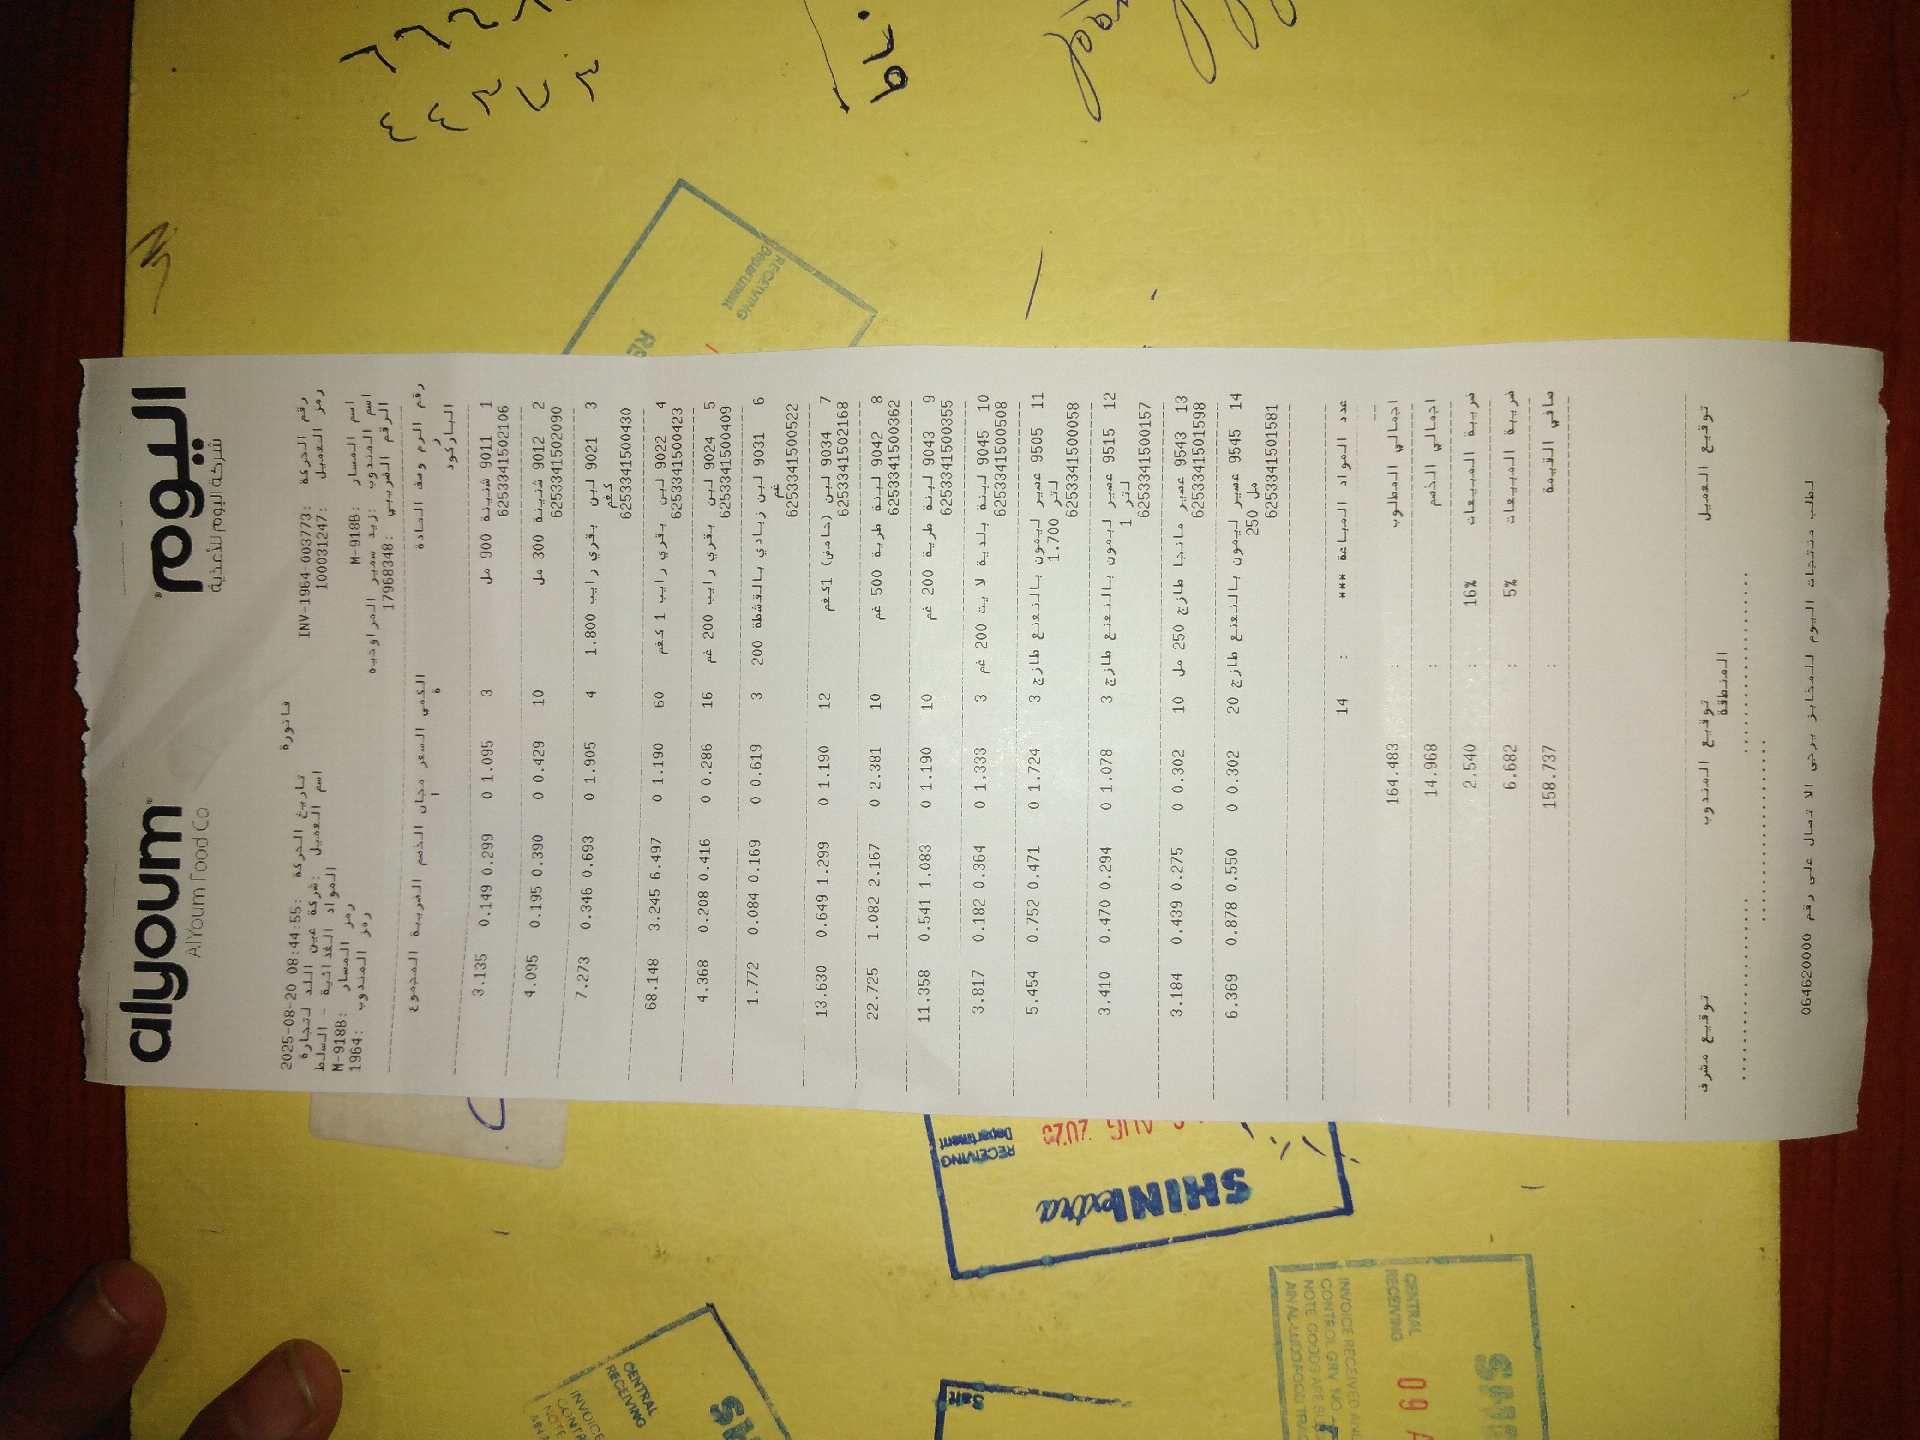 alyoum
AlYoum Food Co
اليوم
شركة اليوم للأغذية
فاتورة
رقم الحركة: INV-1964-003773
تاريخ الحركة: 2025-08-20 08:44:55
رمز العميل: 100031247
اسم العميل: شركة عين اللد لتجارة المواد الغذائية - السلط
اسم المسار: M-918B
رمز المسار: M-918B
اسم المندوب: زيد سمير المراوديه
رمز المندوب: 1964
الرقم الضريبي: 17968348
رقم الرم وصف المادة الكمي السعر مجان الخصم الضريبة المجموع
ز ة ا
الباركود
1 9011 شنينة 900 مل 3 1.095 0 0.299 0.149 3.135
6253341502106
2 9012 شنينة 300 مل 10 0.429 0 0.390 0.195 4.095
6253341502090
3 9021 لبن بقري رايب 1.800 كغم 4 1.905 0 0.693 0.346 7.273
6253341500430
4 9022 لبن بقري رايب 1 كغم 60 1.190 0 6.497 3.245 68.148
6253341500423
5 9024 لبن بقري رايب 200 غم 16 0.286 0 0.416 0.208 4.368
6253341500409
6 9031 لبن زبادي بالقشطة 200 غم 3 0.619 0 0.169 0.084 1.772
6253341500522
7 9034 لبن (حامض) 1كغم 12 1.190 0 1.299 0.649 13.630
6253341502168
8 9042 لبنة طرية 500 غم 10 2.381 0 2.167 1.082 22.725
6253341500362
9 9043 لبنة طرية 200 غم 10 1.190 0 1.083 0.541 11.358
6253341500355
10 9045 لبنة بلدية لايت 200 غم 3 1.333 0 0.364 0.182 3.817
6253341500508
11 9505 عصير ليمون بالنعنع طازج 1.700 لتر 3 1.724 0 0.471 0.752 5.454
6253341500058
12 9515 عصير ليمون بالنعنع طازج 1 لتر 3 1.078 0 0.294 0.470 3.410
6253341500157
13 9543 عصير مانجا طازج 250 مل 10 0.302 0 0.275 0.439 3.184
6253341501598
14 9545 عصير ليمون بالنعنع طازج 250 مل 20 0.302 0 0.550 0.878 6.369
6253341501581
عدد المواد المباعة *** : 14
اجمالي المطلوب : 164.483
اجمالي الخصم : 14.968
ضريبة المبيعات 16% : 2.540
ضريبة المبيعات 5% : 6.682
صافي القيمة : 158.737
توقيع العميل توقيع المندوب توقيع مشرف
المنطقة
لطلب منتجات اليوم للمخابز يرجى الاتصال على رقم 064620000
٤٤٣٧٣
RECEIVING
Department
RECEIVING
Department
AUG 2025
SHINIextra
CENTRAL
RECEIVING
INVOICE
Salt
CENTRAL
RECEIVING
INVOICE RECEIVED AND
CONTROL GRV NO
NOTE GOODS ARE
09 A